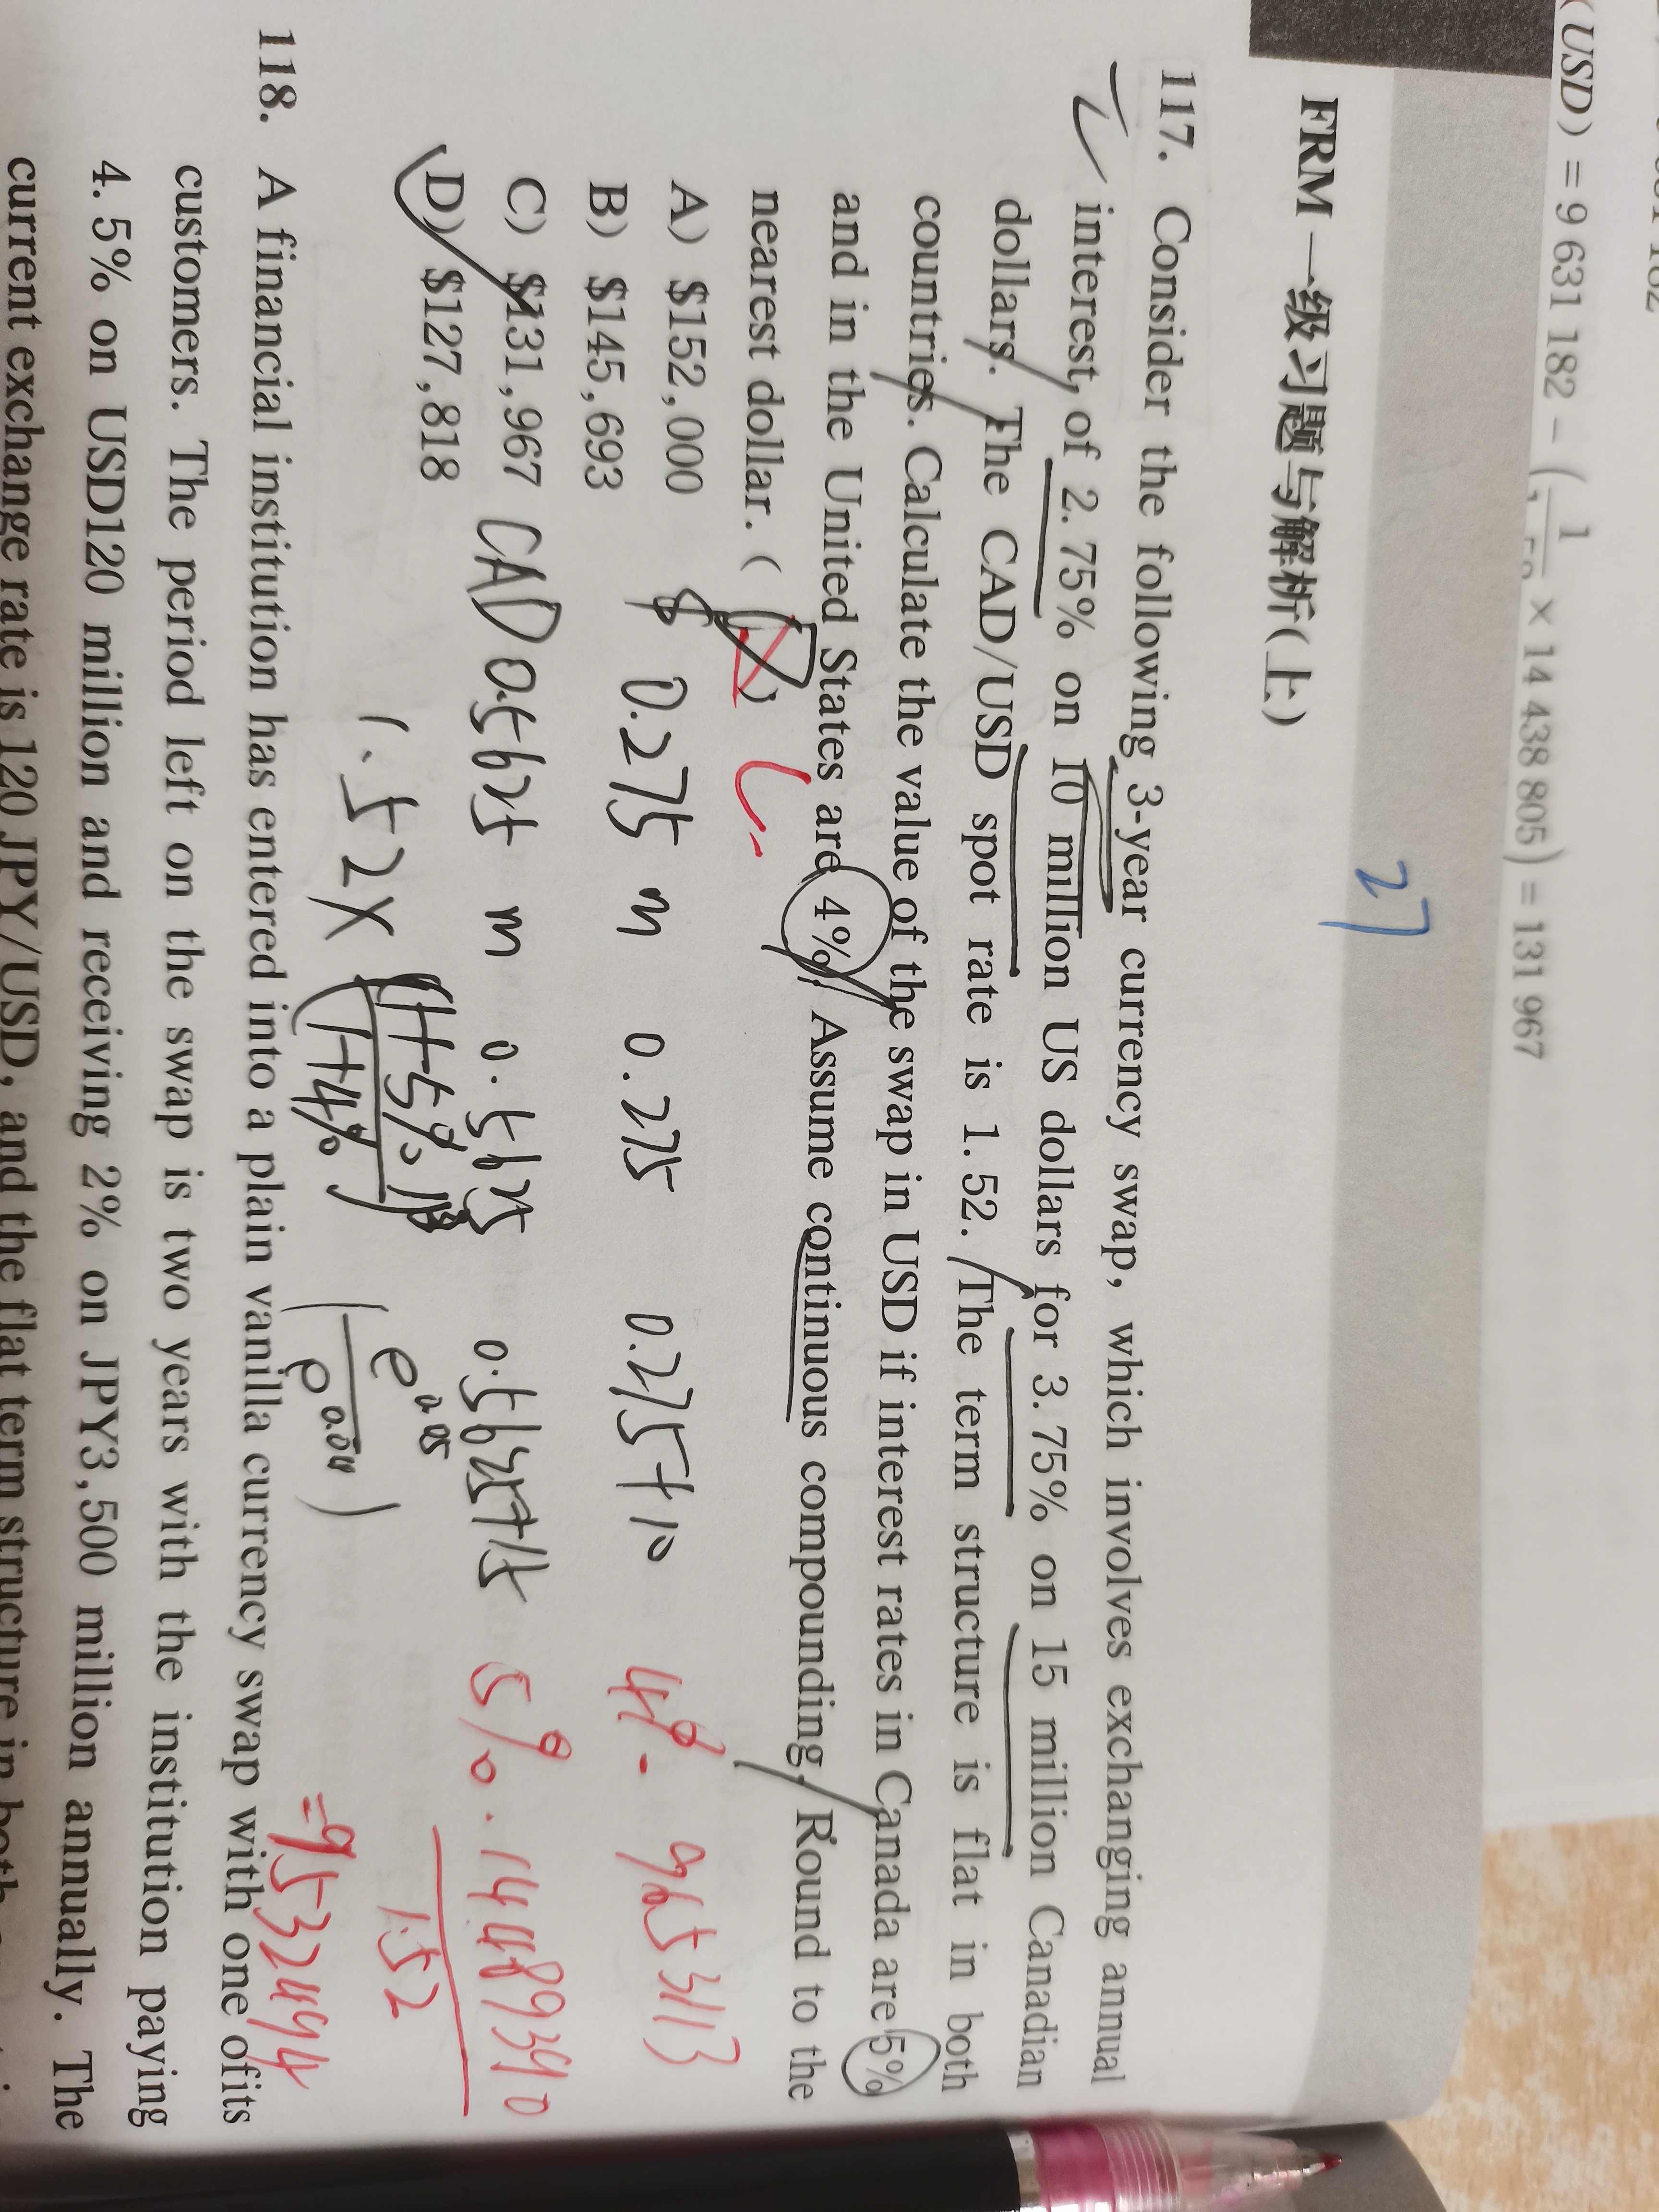 (USD) = 9 631 182 − ( 1 × 14 438 805) = 131 967
FRM一级习题与解析(上)
27
117. Consider the following 3-year currency swap, which involves exchanging annual
interest, of 2.75% on 10 million US dollars for 3.75% on 15 million Canadian
dollars. The CAD/USD spot rate is 1.52. The term structure is flat in both
countries. Calculate the value of the swap in USD if interest rates in Canada are 5%
and in the United States are 4% Assume continuous compounding, Round to the
nearest dollar. ( )
A) $152,000
B) $145,693
C) $131,967
D) $127,818
$ 0.275 m 0.275 0.275+10 4%. 9653113
CAD 0.5625 m 0.5625 0.5625+15 5%. 14489390
1.52
1.52× (1+5%
1+4%) ( e^0.05
e^0.04 )
=9532494
118. A financial institution has entered into a plain vanilla currency swap with one ofits
customers. The period left on the swap is two years with the institution paying
4.5% on USD120 million and receiving 2% on JPY3,500 million annually. The
current exchange rate is 120 JPY/USD, and the flat term structure in both